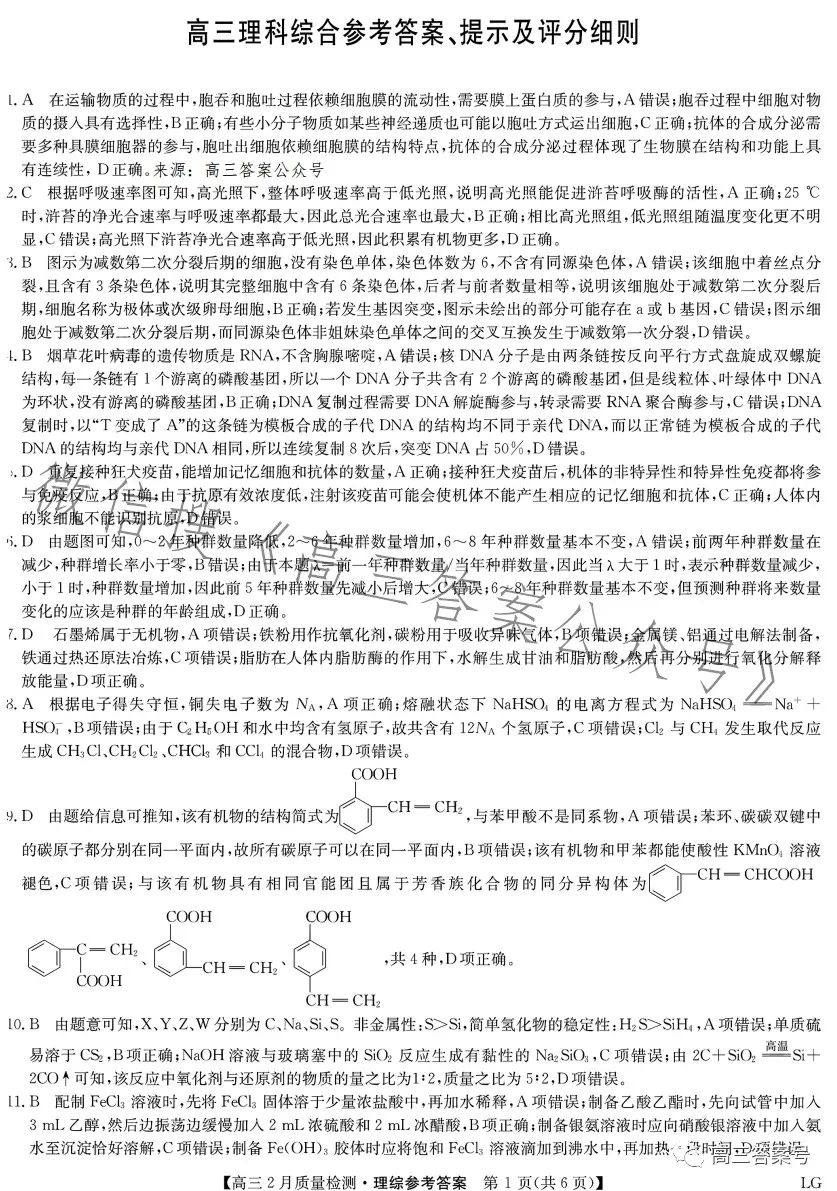 高三理科综合参考答案、提示及评分细则
1. A 在运输物质的过程中,胞吞和胞吐过程依赖细胞膜的流动性,需要膜上蛋白质的参与,A错误;胞吞过程中细胞对物
质的摄入具有选择性,B正确;有些小分子物质如某些神经递质也可能以胞吐方式运出细胞,C正确;抗体的合成分泌需
要多种具膜细胞器的参与,胞吐出细胞依赖细胞膜的结构特点,抗体的合成分泌过程体现了生物膜在结构和功能上具
有连续性,D正确。来源:高三答案公众号
2. C 根据呼吸速率图可知,高光照下,整体呼吸速率高于低光照,说明高光照能促进浒苔呼吸酶的活性,A正确;25 ℃
时,浒苔的净光合速率与呼吸速率都最大,因此总光合速率也最大,B正确;相比高光照组,低光照组随温度变化更不明
显,C错误;高光照下浒苔净光合速率高于低光照,因此积累有机物更多,D正确。
3. B 图示为减数第二次分裂后期的细胞,没有染色单体,染色体数为6,不含有同源染色体,A错误;该细胞中着丝点分
裂,且含有3条染色体,说明其完整细胞中含有6条染色体,后者与前者数量相等,说明该细胞处于减数第二次分裂后
期,细胞名称为极体或次级卵母细胞,B正确;若发生基因突变,图示未绘出的部分可能存在a或b基因,C错误;图示细
胞处于减数第二次分裂后期,而同源染色体非姐妹染色单体之间的交叉互换发生于减数第一次分裂,D错误。
4. B 烟草花叶病毒的遗传物质是RNA,不含胸腺嘧啶,A错误;核DNA分子是由两条链按反向平行方式盘旋成双螺旋
结构,每一条链有1个游离的磷酸基团,所以一个DNA分子共含有2个游离的磷酸基团,但是线粒体、叶绿体中DNA
为环状,没有游离的磷酸基团,B正确;DNA复制过程需要DNA解旋酶参与,转录需要RNA聚合酶参与,C错误;DNA
复制时,以“T变成了A”的这条链为模板合成的子代DNA的结构均不同于亲代DNA,而以正常链为模板合成的子代
DNA的结构均与亲代DNA相同,所以连续复制8次后,突变DNA占50%,D错误。
5. D 重复接种狂犬疫苗,能增加记忆细胞和抗体的数量,A正确;接种狂犬疫苗后,机体的非特异性和特异性免疫都将参
与免疫反应,B正确;由于抗原有效浓度低,注射该疫苗可能会使机体不能产生相应的记忆细胞和抗体,C正确;人体内
的浆细胞不能识别抗原,D错误。
6. D 由题图可知,0~2年种群数量降低,2~6年种群数量增加,6~8年种群数量基本不变,A错误;前两年种群数量在
减少,种群增长率小于零,B错误;由于本题λ=前一年种群数量/当年种群数量,因此当λ大于1时,表示种群数量减少,
小于1时,种群数量增加,因此前5年种群数量先减小后增大,C错误;6~8年种群数量基本不变,但预测种群将来数量
变化的应该是种群的年龄组成,D正确。
7. D 石墨烯属于无机物,A项错误;铁粉用作抗氧化剂,碳粉用于吸收异味气体,B项错误;金属镁、铝通过电解法制备,
铁通过热还原法冶炼,C项错误;脂肪在人体内脂肪酶的作用下,水解生成甘油和脂肪酸,然后再分别进行氧化分解释
放能量,D项正确。
8. A 根据电子得失守恒,铜失电子数为Nₐ,A项正确;熔融状态下NaHSO₄的电离方程式为NaHSO₄══Na⁺+
HSO₄⁻,B项错误;由于C₂H₅OH和水中均含有氢原子,故共含有12Nₐ个氢原子,C项错误;Cl₂与CH₄发生取代反应
生成CH₃Cl、CH₂Cl₂、CHCl₃和CCl₄的混合物,D项错误。
COOH
9. D 由题给信息可推知,该有机物的结构简式为 CH=CH₂,与苯甲酸不是同系物,A项错误;苯环、碳碳双键中
的碳原子都分别在同一平面内,故所有碳原子可以在同一平面内,B项错误;该有机物和甲苯都能使酸性KMnO₄溶液
褪色,C项错误;与该有机物具有相同官能团且属于芳香族化合物的同分异构体为 CH=CHCOOH
COOH COOH
C=CH₂、 CH=CH₂、 ,共4种,D项正确。
COOH
CH=CH₂
10. B 由题意可知,X、Y、Z、W分别为C、Na、Si、S。非金属性:S>Si,简单氢化物的稳定性:H₂S>SiH₄,A项错误;单质硫
易溶于CS₂,B项正确;NaOH溶液与玻璃塞中的SiO₂反应生成有黏性的Na₂SiO₃,C项错误;由2C+SiO₂ 高温══ Si+
2CO↑可知,该反应中氧化剂与还原剂的物质的量之比为1∶2,质量之比为5∶2,D项错误。
11. B 配制FeCl₃溶液时,先将FeCl₃固体溶于少量浓盐酸中,再加水稀释,A项错误;制备乙酸乙酯时,先向试管中加入
3 mL乙醇,然后边振荡边缓慢加入2 mL浓硫酸和2 mL冰醋酸,B项正确;制备银氨溶液时应向硝酸银溶液中加入氨
水至沉淀恰好溶解,C项错误;制备Fe(OH)₃胶体时应将饱和FeCl₃溶液滴加到沸水中,再加热一段时间,D项错误
【高三2月质量检测·理综参考答案 第1页(共6页)】 LG
微信搜《高三答案公众号》
高三答案号